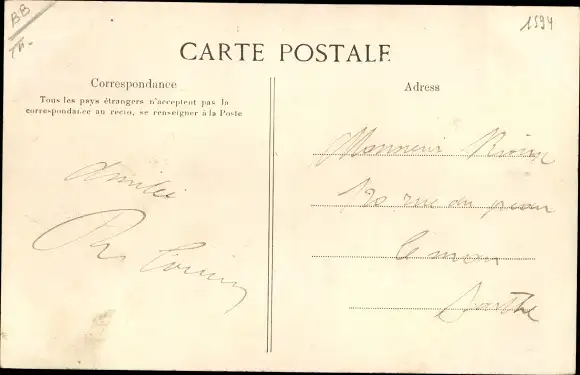 BB
1594
CARTE POSTALE
Correspondance
Tous les pays étrangers n'acceptent pas la
correspondance au recto, se renseigner à la Poste
Adress
Monsieur
120 rue du
Le mans
Sarthe
Amitié